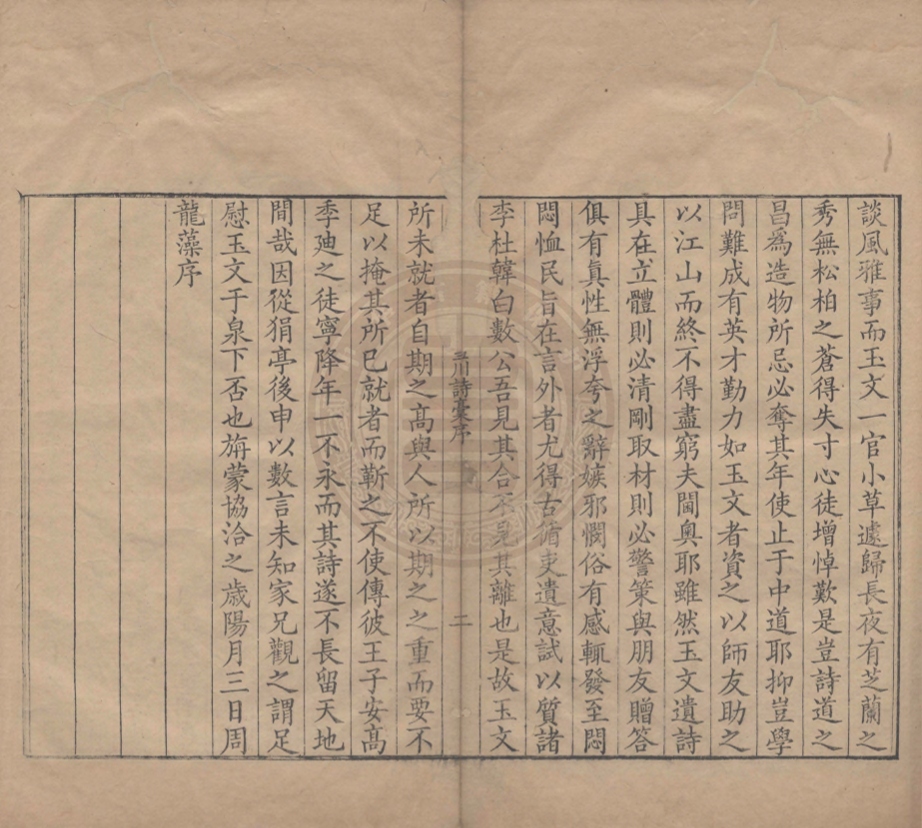 談風雅事而玉文一官小草遽歸長夜有芝蘭之
秀無松柏之蒼得失寸心徒增悼歎是豈詩道之
昌爲造物所忌必奪其年使止于中道耶抑豈學
問難成有英才勤力如玉文者資之以師友助之
以江山而終不得盡窮夫閫奧耶雖然玉文遺詩
具在立體則必清剛取材則必警策與朋友贈答
俱有眞性無浮夸之辭嫉邪憫俗有感輒發至悶
悶恤民旨在言外者尤得古循吏遺意試以質諸
李杜韓白數公吾見其合不見其離也是故玉文
川詩稾序
二
所未就者自期之高與人所以期之之重而要不
足以掩其所已就者而靳之不使傳彼王子安高
季廸之徒寧降年一不永而其詩遂不長留天地
間哉因從狷亭後申以數言未知家兄觀之謂足
慰玉文于泉下否也旃蒙協洽之歲陽月三日周
龍藻序